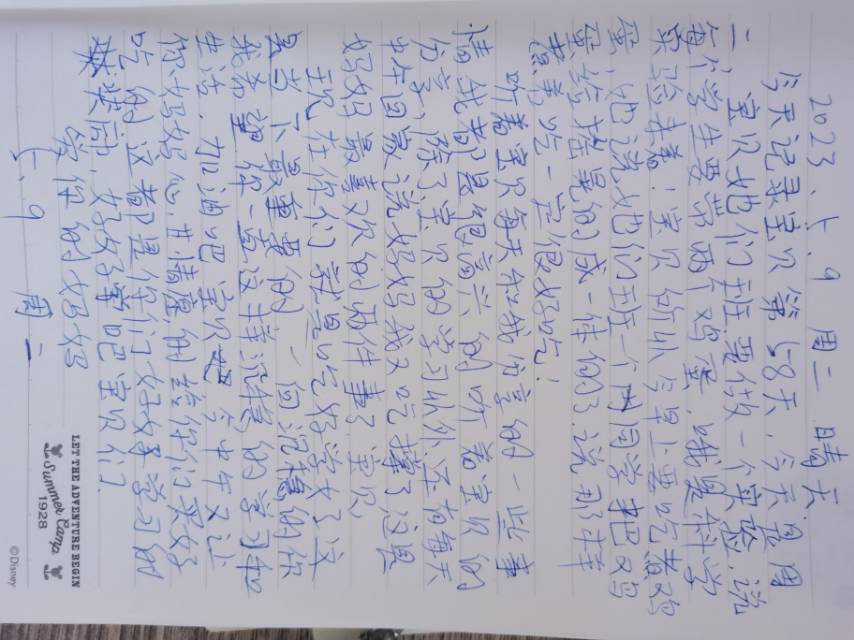 2023.5.9 周二 晴天
今天记录宝贝第58天.今天是周
二,宝贝她们班要做一个实验.说
每个学生要带两个鸡蛋.哦是科学
实验来着!宝贝所以今早上要吃煮鸡
蛋,她说她们班一个男同学把鸡
蛋给搞晃的成一体的了.说那样
煮着吃一定很好吃!
听着宝贝每天和我分享的一些事
情我都是很高兴的听着宝贝的
分享,除了宝贝的学习以外.还有每天
中午回家说好好我又吃撑了这是
好好最喜欢的两件事了.宝贝.
现在你们就是吃好学好了这
是当下最重要的.一向沉稳的你
我希望你一直这样沉稳的学习和
生活.加油吧宝贝
你好好吃.开满意的
吃的这都是你们好好学习的
奖励.好好学吧宝贝们.
爱你的好好
5.9 周二
LET THE ADVENTURE BEGIN
Summer Camp
1928
© Disney